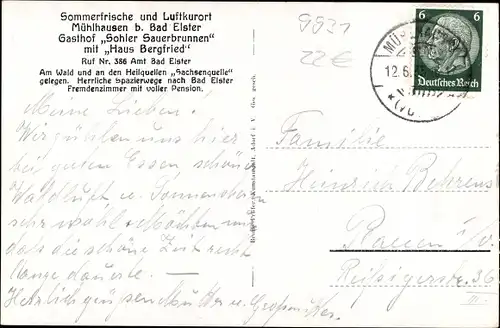 Sommerfrische und Luftkurort
Mühlhausen b. Bad Elster
Gasthof „Sohler Sauerbrunnen"
mit „Haus Bergfried"
Ruf Nr. 386 Amt Bad Elster
Am Wald und an den Heilquellen „Sachsenquelle"
gelegen. Herrliche Spazierwege nach Bad Elster
Fremdenzimmer mit voller Pension.
9831
22€
6 6
Deutsches Reich
12.6.
Meine Lieben.
Wir fühlen uns hier
bei guten Essen schöner
Waldluft u. Sonnenschein
sehr wohl. Möchten nur
daß die schöne Zeit recht
lange dauerte.
Herzlich grüßen Mutter u. Großmutter.
Familie
Heinrich Behrens
Plauen i/V.
Reißigerstr. 36
III.